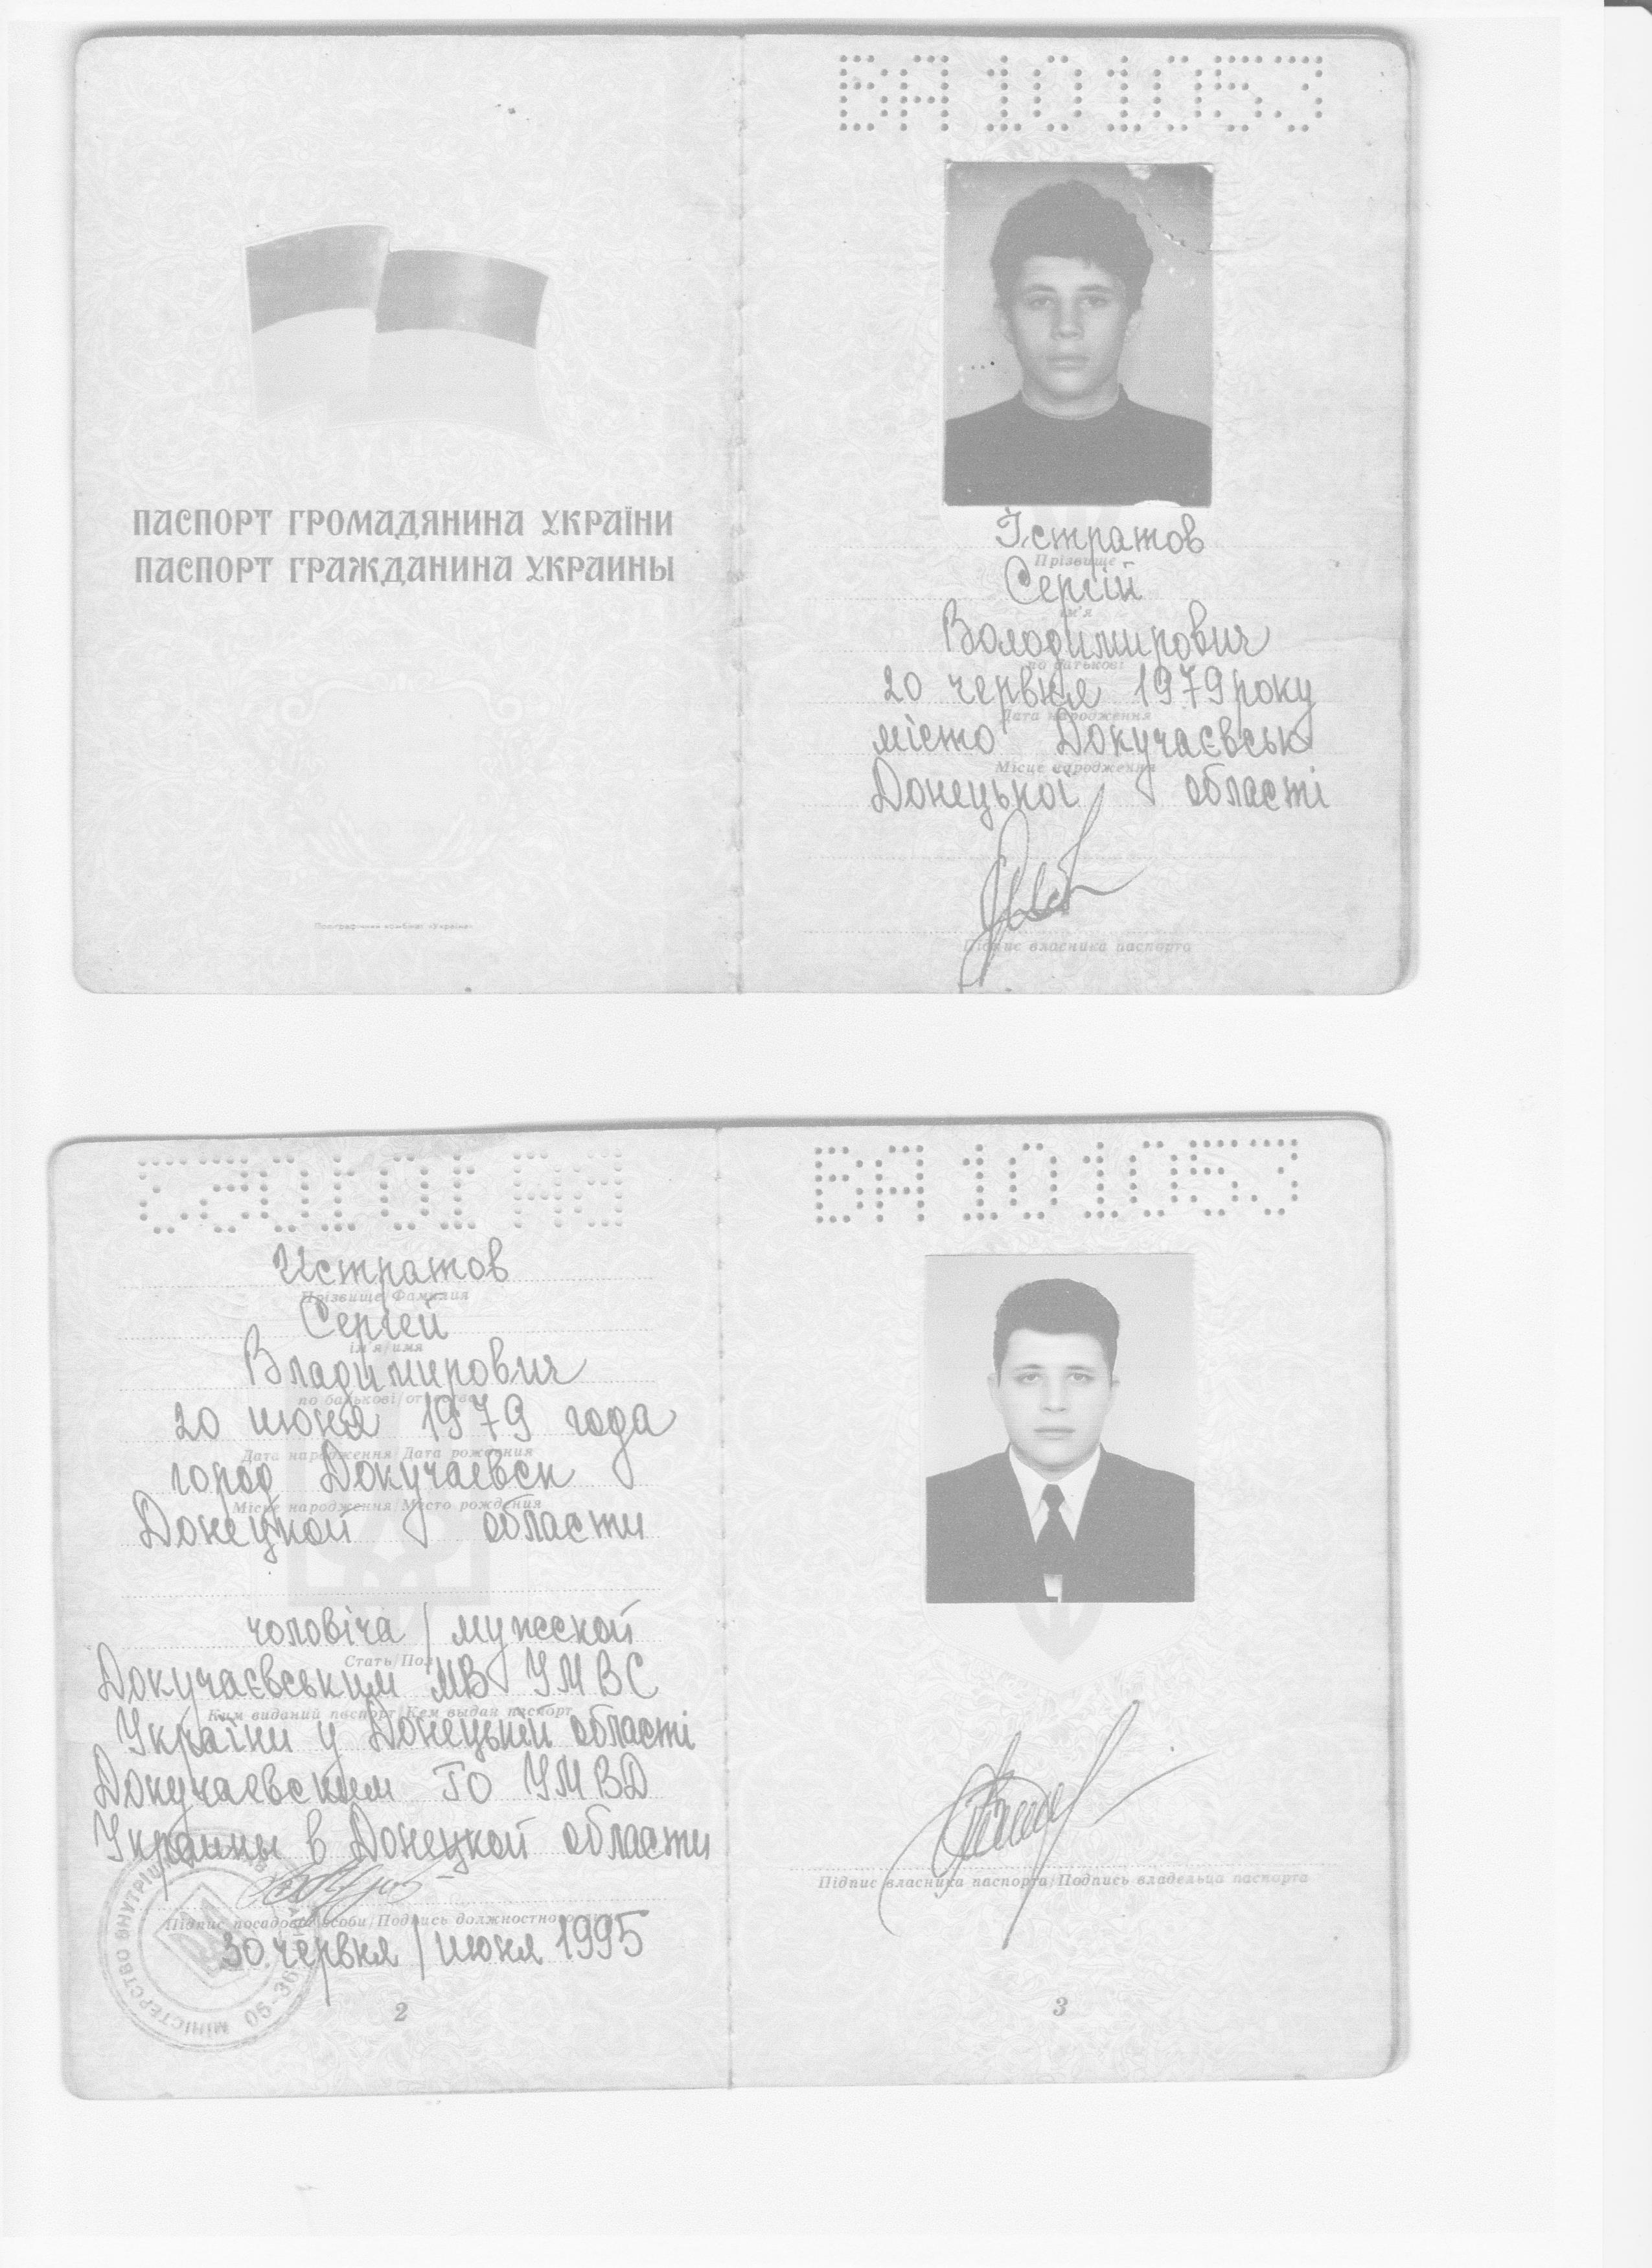 ВА 101053
ПАСПОРТ ГРОМАДЯНИНА УКРАЇНИ
ПАСПОРТ ГРАЖДАНИНА УКРАИНЫ
Поліграфічний комбінат «Україна»
Істратов
Прізвище
Сергій
ім'я
Володимирович
по батькові
20 червня 1979 року
Дата народження
місто Докучаєвськ
Місце народження
Донецької області
Підпис власника паспорта
ВА 101053
Истратов
Прізвище/Фамилия
Сергей
ім'я/имя
Владимирович
по батькові/отчество
20 июня 1979 года
Дата народження/Дата рождения
город Докучаевск
Місце народження/Место рождения
Донецкой области
чоловіча / мужской
Стать/Пол
Докучаєвським МВ УМВС
Ким виданий паспорт/Кем выдан паспорт
України у Донецькій області
Докучаевским ГО УМВД
Украины в Донецкой области
Підпис посадової особи/Подпись должностного
30 червня / июня 1995
МІНІСТЕРСТВО ВНУТРІШ
2
ВА 101053
Підпис власника паспорта/Подпись владельца паспорта
3